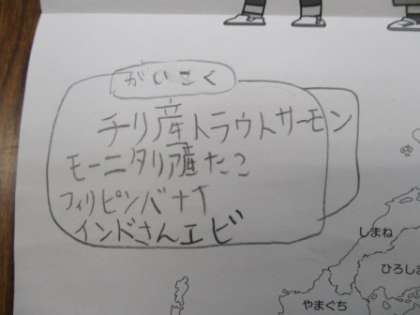 がいこく
チリ産トラウトサーモン
モーニタリア産たこ
フィリピンバナナ
インドさんエビ
しまね
ひろしま
やまぐち